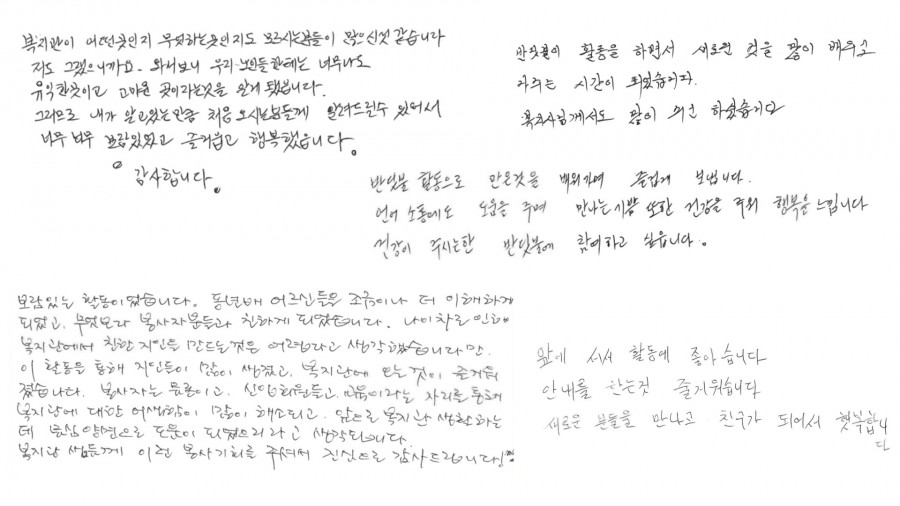 복지관이 어떤곳인지 무엇하는곳인지도 모르시는분들이 많으신것 같습니다
저도 그랬으니까요. 와서보니 우리 노인들한테는 너무나도
유익한곳이고 고마운 곳이라는것을 알게 됐습니다.
그러므로 내가 알고있는만큼 처음 오시는분들께 알려드릴수 있어서
너무 너무 보람있었고 즐거웁고 행복했습니다.
감사합니다.
반딧불이 활동을 하면서 새로운 것을 많이 배우고
나누는 시간이 되었습니다.
복지사님께서도 많이 의견 하셨습니다
반딧불 활동으로 많은것을 배워가며 즐겁게 보냅니다.
언어 소통에도 도움을 주며 만나는 기쁨 또한 건강을 주워 행복을 느낍니다
건강이 주시는한 반딧불에 참여하고 싶읍니다.
보람있는 활동이었습니다. 동년배 어르신들을 조금이나 더 이해하게
되었고, 무엇보다 봉사자분들과 친하게 되었습니다. 나이차로 인해
복지관에서 친한 지인을 만드는것은 어렵다고 생각했습니다만,
이 활동을 통해 지인들이 많이 생겼고, 복지관에 오는 것이 즐거워
졌습니다. 봉사자는 물론이고, 신입회원들고 이라는 자리를 통해
복지관에 대한 어색함이 많이 해소되고, 앞으로 복지관 생활하는
데 도움이 되었으리라고 생각됩니다.
복지관 쌤들께 이런 봉사기회를 주셔서 진심으로 감사드립니다!
앞에 서서 활동에 좋아습니다
안내를 하는것 즐거워습니다
새로운 분들을 만나고 친구가 되어서 행복합니
다